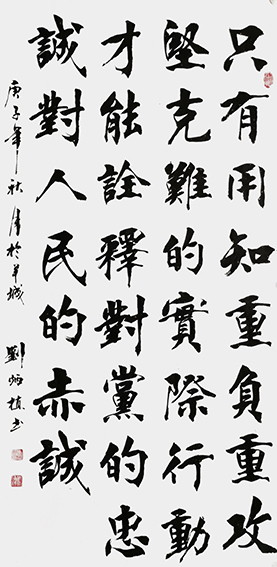 只有用知重負重攻
堅克難的實際行動
才能詮釋對黨的忠
誠對人民的赤誠
庚子年秋於羊城
劉炳书